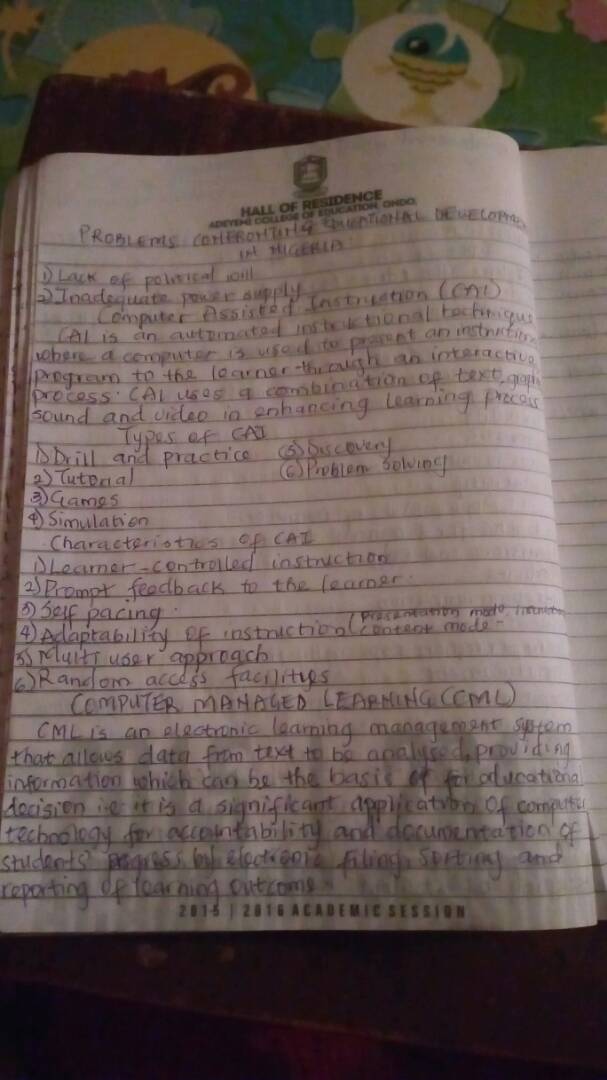 HALL OF RESIDENCE
ADEYEMI COLLEGE OF EDUCATION, ONDO
PROBLEMS CONFRONTING EDUCATIONAL DEVELOPMENT
IN NIGERIA
1) Lack of political will
2) Inadequate power supply
Computer Assisted Instruction (CAI)
CAI is an automated instructional technique
where a computer is used to present an instruction
program to the learner through an interactive
process. CAI uses a combination of text, graph
sound and video in enhancing learning process
Types of CAI
1) Drill and practice (5) Discovery
2) Tutorial (6) Problem Solving
3) Games
4) Simulation
Characteristics of CAI
1) Learner-controlled instruction
2) Prompt feedback to the learner.
3) Self pacing.
4) Adaptability of instruction (presentation mode,
content mode-
5) Multi user approach
6) Random access facilitys
COMPUTER MANAGED LEARNING (CML)
CML is an electronic learning management system
that allows data from text to be analysed, providing
information which can be the basis of for educational
decision i.e it is a significant application of computer
technology for accountability and documentation of
students' progress by electronic filing, sorting and
reporting of learning outcome
2015 | 2016 ACADEMIC SESSION